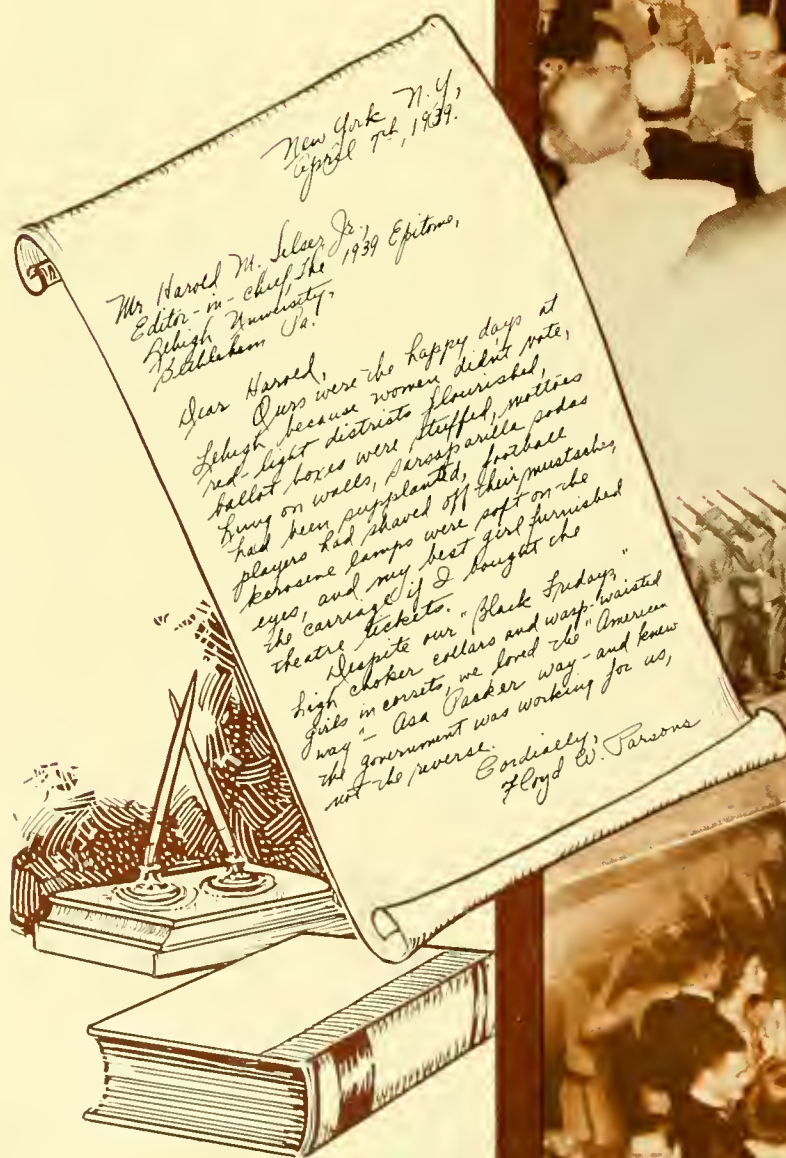 New York N.Y,
April 7th, 1939.
Mr Harold M. Selser Jr.,
Editor-in-chief, The 1939 Epitome,
Lehigh University,
Bethlehem Pa.
Dear Harold,
Ours were the happy days at
Lehigh because women didn't vote,
red-light districts flourished,
ballot boxes were stuffed, mottoes
hung on walls, sarsaparilla sodas
had been supplanted, football
players had shaved off their mustaches,
kerosene lamps were soft on the
eyes, and my best girl furnished
the carriage if I bought the
theatre tickets.
Despite our "Black Fridays,"
high choker collars and wasp-waisted
girls in corsets, we loved the "American
way" - Asa Packer way - and knew
the government was working for us,
not the reverse.
Cordially,
Floyd W. Parsons